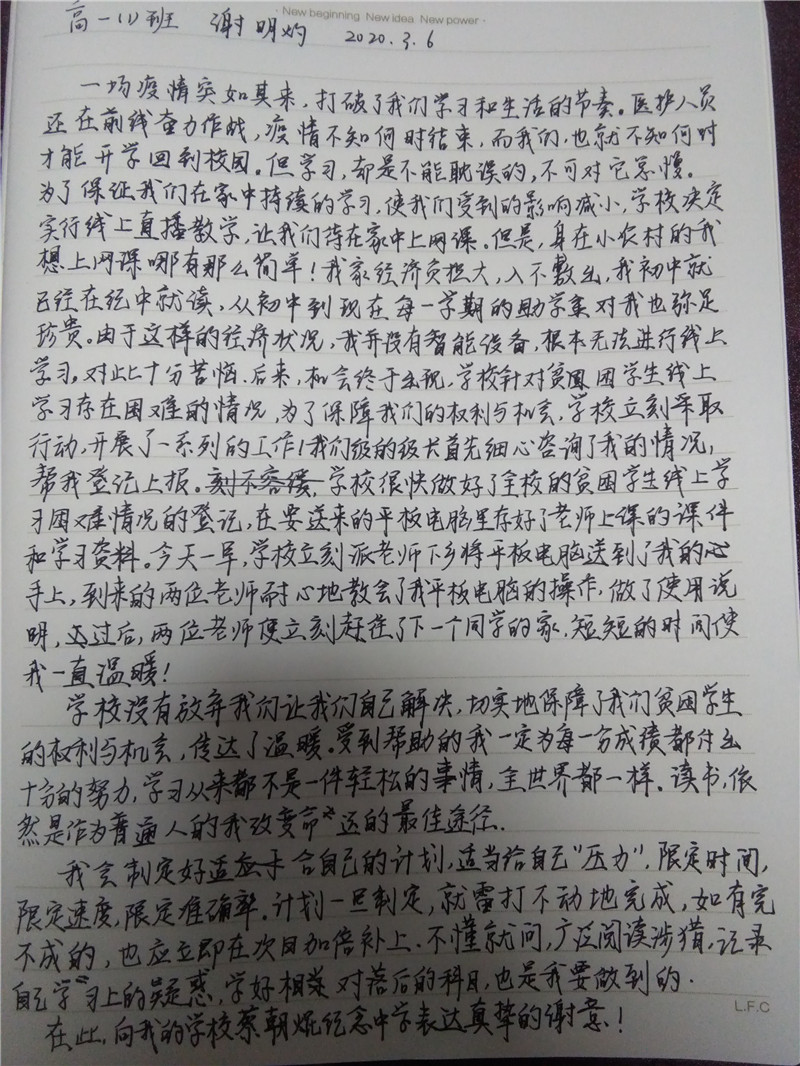 · New beginning New idea New power ·
高一(1)班 谢明灼 2020.3.6
一场疫情突如其来,打破了我们学习和生活的节奏。医护人员
还在前线奋力作战,疫情不知何时结束,而我们,也就不知何时
才能开学回到校园。但学习,却是不能耽误的,不可对它怠慢。
为了保证我们在家中持续的学习,使我们受到的影响减小,学校决定
实行线上直播教学,让我们待在家中上网课。但是,身在小农村的我
想上网课哪有那么简单!我家经济负担大,入不敷出,我初中就
已经在纪中就读,从初中到现在每一学期的助学金对我也弥足
珍贵。由于这样的经济状况,我并没有智能设备,根本无法进行线上
学习。对此十分苦恼.后来,机会终于出现,学校针对贫困学生线上
学习存在困难的情况,为了保障我们的权利与机会,学校立刻采取
行动,开展了一系列的工作!我们级的级长首先细心咨询了我的情况,
帮我登记上报。刻不容缓,学校很快做好了全校的贫困学生线上学
习困难情况的登记,在要送来的平板电脑里存好了老师上课的课件
和学习资料。今天一早,学校立刻派老师下乡将平板电脑送到了我的
手上,到来的两位老师耐心地教会了我平板电脑的操作,做了使用说
明,过后,两位老师便立刻赶往了下一个同学的家.短短的时间使
我一直温暖!
学校没有放弃我们让我们自己解决,切实地保障了我们贫困学生
的权利与机会,传达了温暖。受到帮助的我一定为每一分成绩都付出
十分的努力,学习从来都不是一件轻松的事情,全世界都一样。读书,依
然是作为普通人的我改变命运的最佳途径.
我会制定好适合自己的计划,适当给自己“压力”,限定时间,
限定速度,限定准确率.计划一旦制定,就雷打不动地完成,如有完
不成的,也应立即在次日加倍补上.不懂就问,广泛阅读涉猎,记录
自己学习上的疑惑,学好相关对落后的科目,也是我要做到的.
在此,向我的学校蔡朝焜纪念中学表达真挚的谢意!
L.F.C